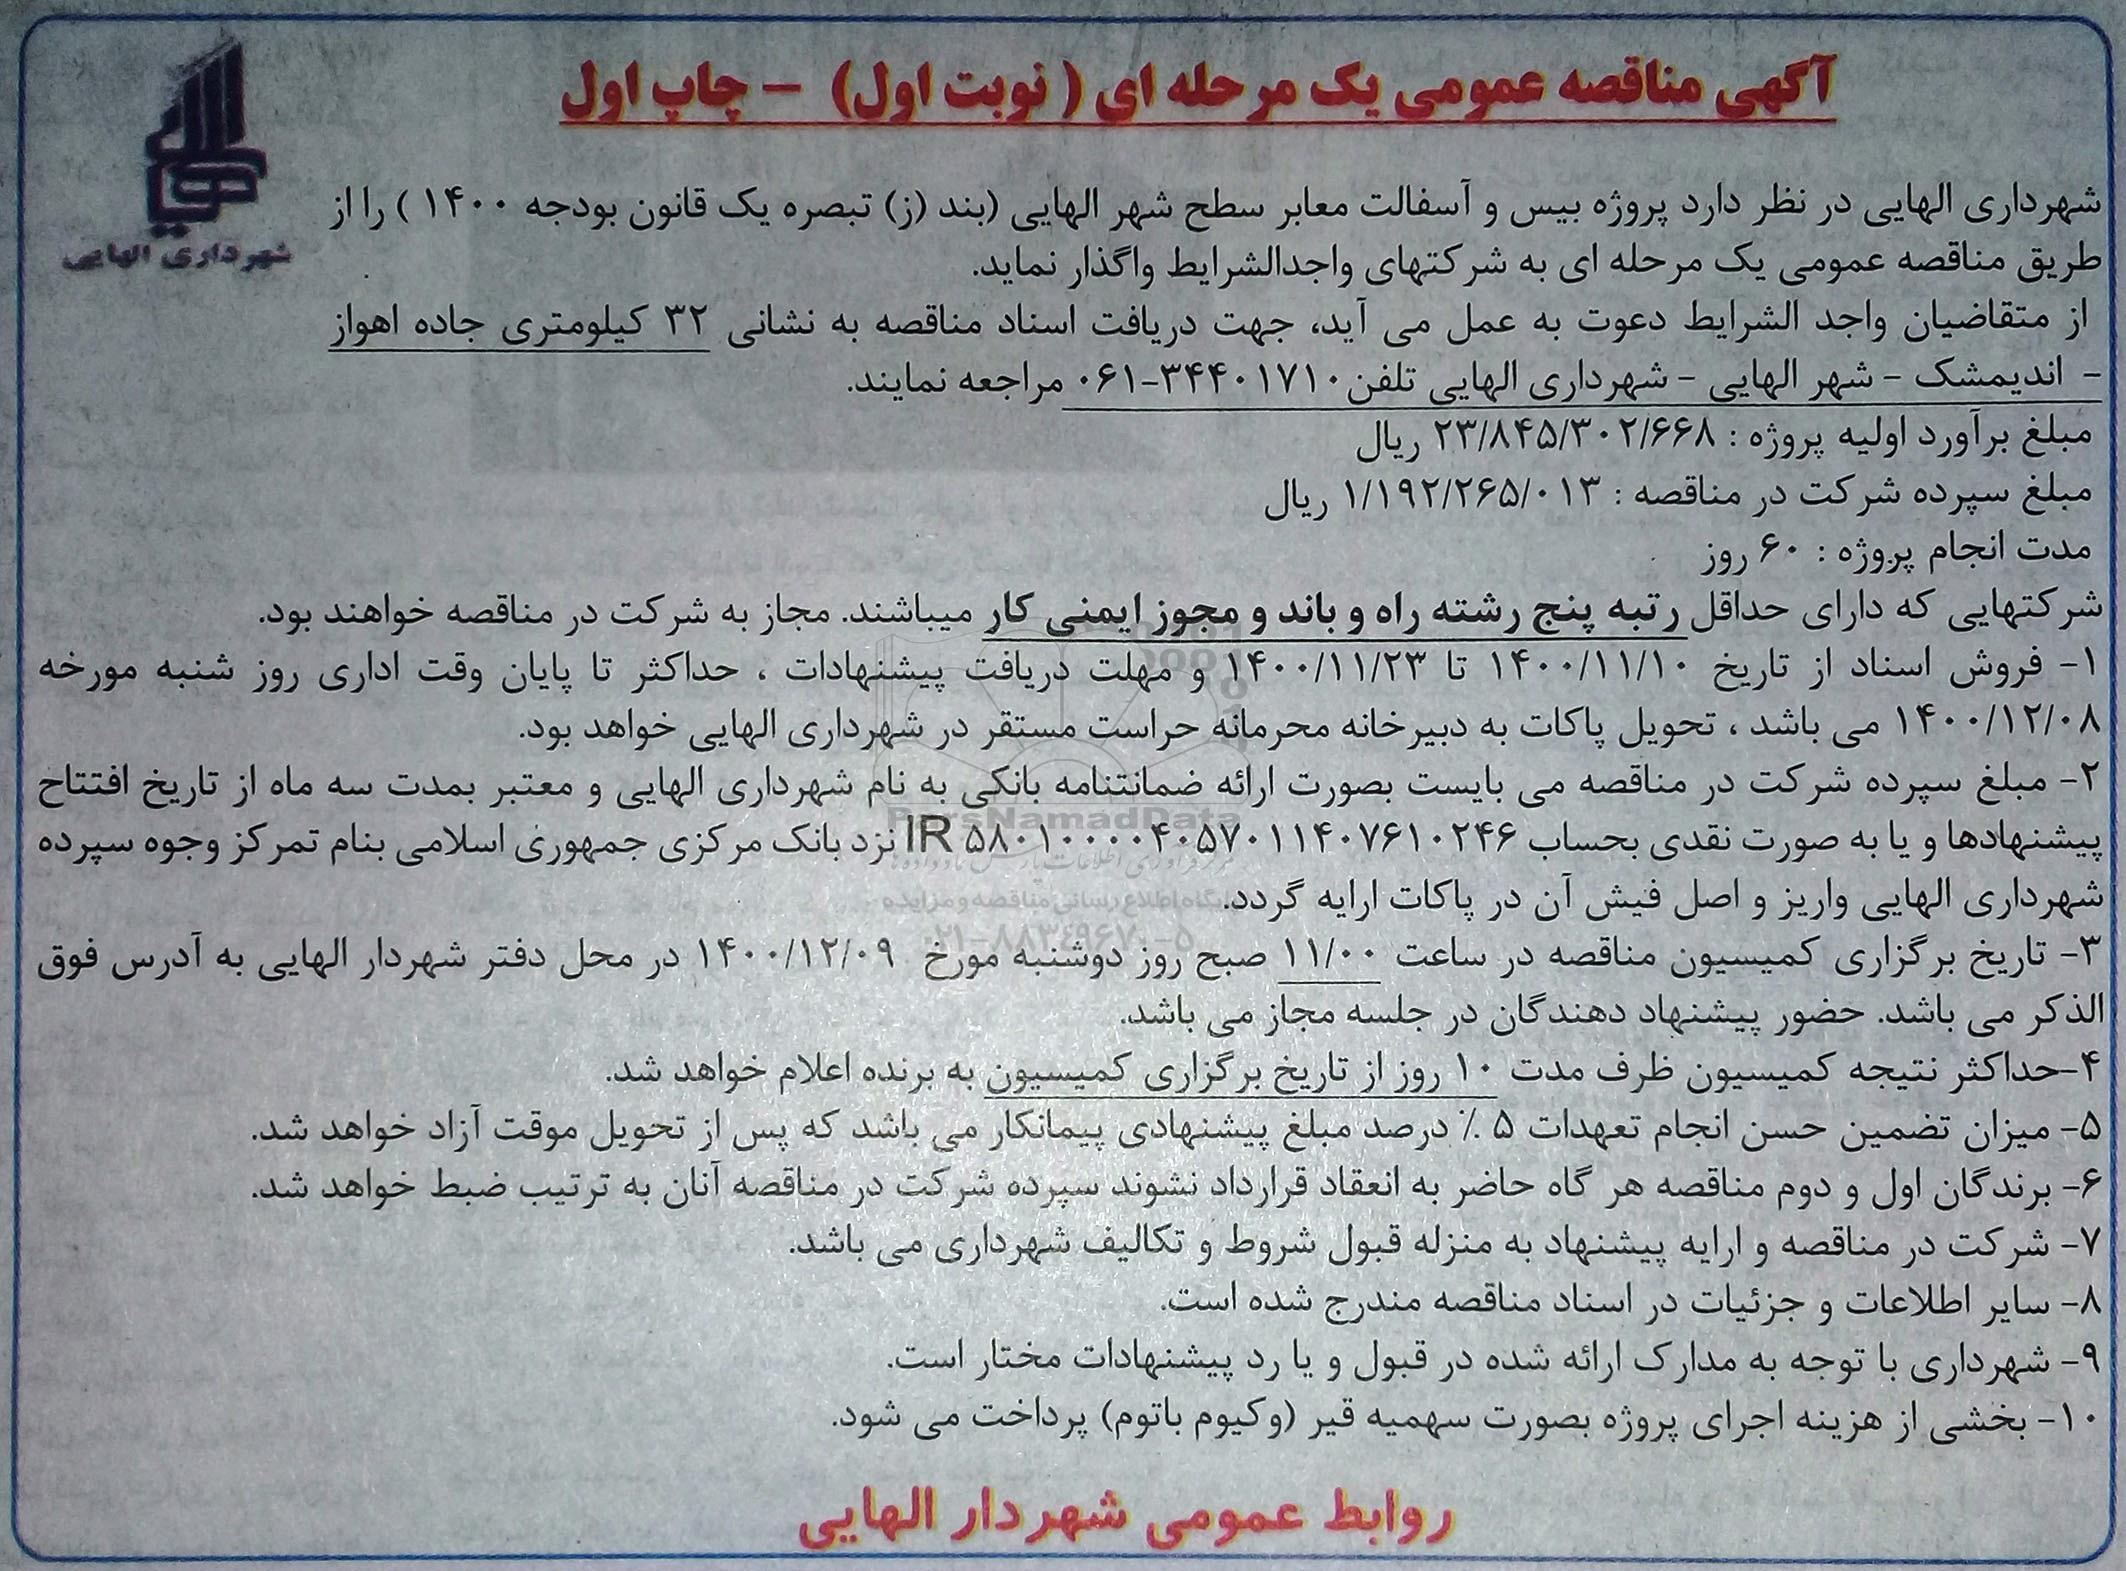 آگهی مناقصه عمومی یک مرحله ای ( نوبت اول) – چاپ اول
شهرداری الهایی
شهرداری الهایی در نظر دارد پروژه بیس و آسفالت معابر سطح شهر الهایی (بند (ز) تبصره یک قانون بودجه ۱۴۰۰ ) را از
طریق مناقصه عمومی یک مرحله ای به شرکتهای واجدالشرایط واگذار نماید.
از متقاضیان واجد الشرایط دعوت به عمل می آید، جهت دریافت اسناد مناقصه به نشانی ۳۲ کیلومتری جاده اهواز
- اندیمشک - شهر الهایی - شهرداری الهایی تلفن ۳۴۴۰۱۷۱۰-۰۶۱ مراجعه نمایند.
مبلغ برآورد اولیه پروژه : ۲۳/۸۴۵/۳۰۲/۶۶۸ ریال
مبلغ سپرده شرکت در مناقصه : ۱/۱۹۲/۲۶۵/۰۱۳ ریال
مدت انجام پروژه : ۶۰ روز
شرکتهایی که دارای حداقل رتبه پنج رشته راه و باند و مجوز ایمنی کار میباشند. مجاز به شرکت در مناقصه خواهند بود.
۱- فروش اسناد از تاریخ ۱۴۰۰/۱۱/۱۰ تا ۱۴۰۰/۱۱/۲۳ و مهلت دریافت پیشنهادات ، حداکثر تا پایان وقت اداری روز شنبه مورخه
۱۴۰۰/۱۲/۰۸ می باشد ، تحویل پاکات به دبیرخانه محرمانه حراست مستقر در شهرداری الهایی خواهد بود.
۲- مبلغ سپرده شرکت در مناقصه می بایست بصورت ارائه ضمانتنامه بانکی به نام شهرداری الهایی و معتبر بمدت سه ماه از تاریخ افتتاح
ParsNamadData
پیشنهادها و یا به صورت نقدی بحساب IR ۵۸۰۱۰۰۰۰۴۰۵۷۰۱۱۴۰۷۶۱۰۲۴۶ نزد بانک مرکزی جمهوری اسلامی بنام تمرکز وجوه سپرده
شهرداری الهایی واریز و اصل فیش آن در پاکات ارایه گردد.
پایگاه اطلاع رسانی مناقصه و مزایده
۰۲۱-۸۸۳۴۹۶۷۰-۵
۳- تاریخ برگزاری کمیسیون مناقصه در ساعت ۱۱/۰۰ صبح روز دوشنبه مورخ ۱۴۰۰/۱۲/۰۹ در محل دفتر شهردار الهایی به آدرس فوق
الذکر می باشد. حضور پیشنهاد دهندگان در جلسه مجاز می باشد.
۴-حداکثر نتیجه کمیسیون ظرف مدت ۱۰ روز از تاریخ برگزاری کمیسیون به برنده اعلام خواهد شد.
۵- میزان تضمین حسن انجام تعهدات ۵ ٪ درصد مبلغ پیشنهادی پیمانکار می باشد که پس از تحویل موقت آزاد خواهد شد.
۶- برندگان اول و دوم مناقصه هر گاه حاضر به انعقاد قرارداد نشوند سپرده شرکت در مناقصه آنان به ترتیب ضبط خواهد شد.
۷- شرکت در مناقصه و ارایه پیشنهاد به منزله قبول شروط و تکالیف شهرداری می باشد.
۸- سایر اطلاعات و جزئیات در اسناد مناقصه مندرج شده است.
۹- شهرداری با توجه به مدارک ارائه شده در قبول و یا رد پیشنهادات مختار است.
۱۰- بخشی از هزینه اجرای پروژه بصورت سهمیه قیر (وکیوم باتوم) پرداخت می شود.
روابط عمومی شهردار الهایی